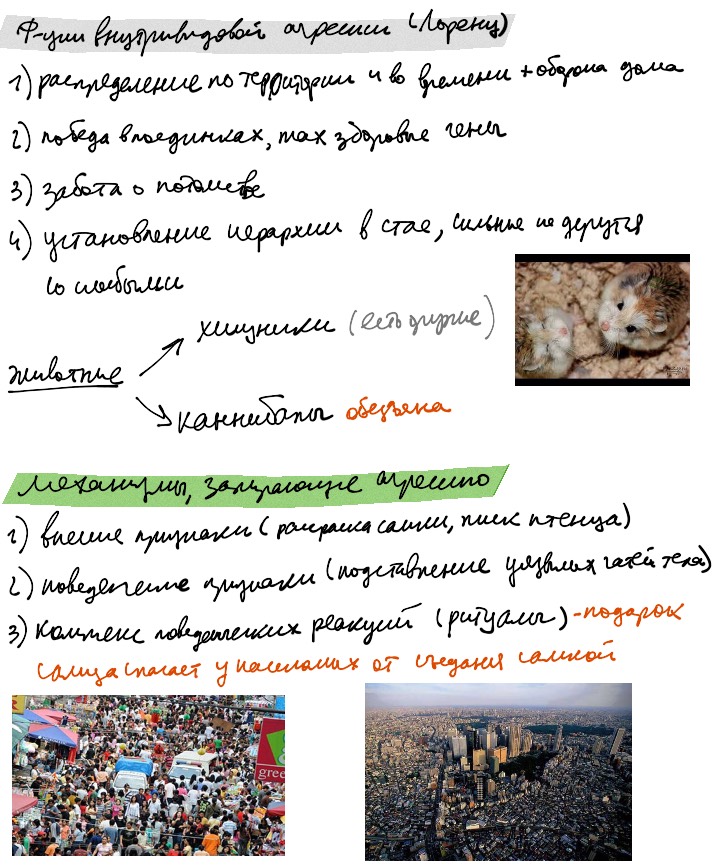 Ф-ции внутривидовой агрессии (Лоренц)
1) распределение по территории и во времени + оборона дома
2) победа в поединках, max здоровые гены
3) забота о потомстве
4) установление иерархии в стае, сильные не дерутся
со слабыми
хищники (есть другие)
животные
каннибалы обезьяна
Механизмы, запирающие агрессию
1) внешние признаки (раскраска самки, писк птенца)
2) поведенческие признаки (подставление уязвимых частей тела)
3) комплекс поведенческих реакций (ритуалы) - подарок
самца спасает у насекомых от съедания самкой
gree